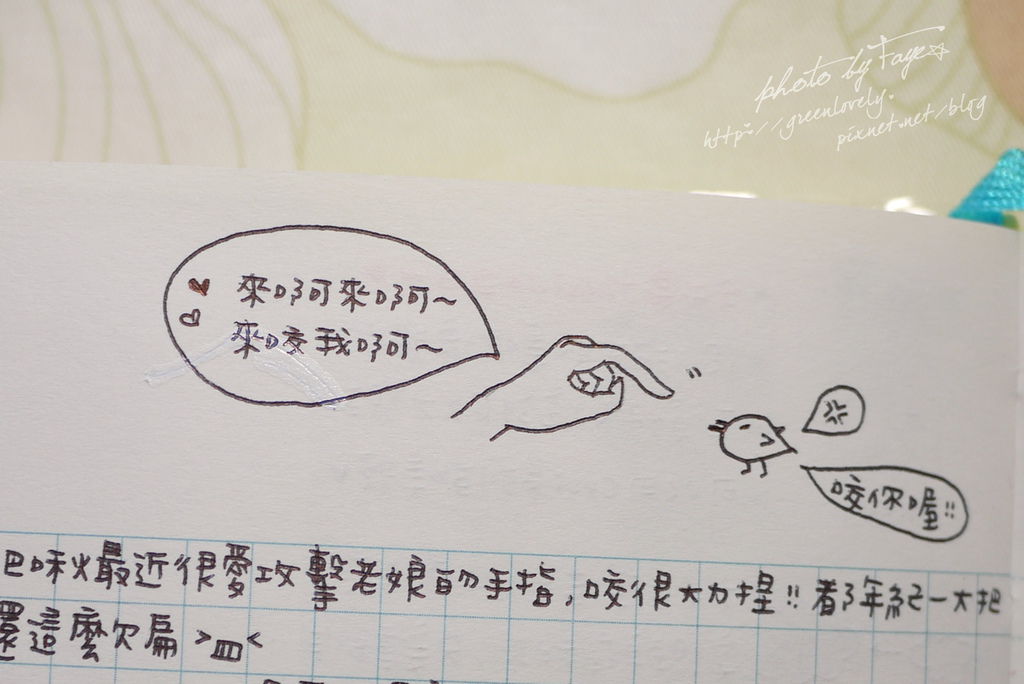 photo by Faye☆
http://greenlovely.
pixnet.net/blog
來啊來啊~
來咬我啊~
咬你喔!!
巴啾最近很愛攻擊老娘的手指,咬很大力捏!!看了年紀一大把
還這麼欠扁 >皿<